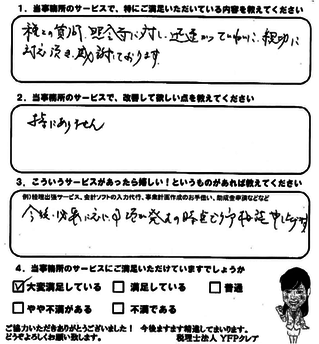 1. 当事務所のサービスで、特にご満足いただいている内容を教えてください
税ムの質問、照会等に対し、迅速かつていねいに、親切に
対応頂き、感謝しております。
2. 当事務所のサービスで、改善して欲しい点を教えてください
特にありません
3. こういうサービスがあったら嬉しい！というものがあれば教えてください
例)経理出張サービス、会計ソフトの入力代行、事業計画作成のお手伝い、助成金申請などなど
今後、必要に応じ
4. 当事務所のサービスにご満足いただけていますでしょうか
☑大変満足している □満足している □普通
□やや不満がある □不満である
ご協力いただきありがとうございました！ 今後ますます精進してまいります。
どうぞよろしくお願い致します。 税理士法人 YFPクレア